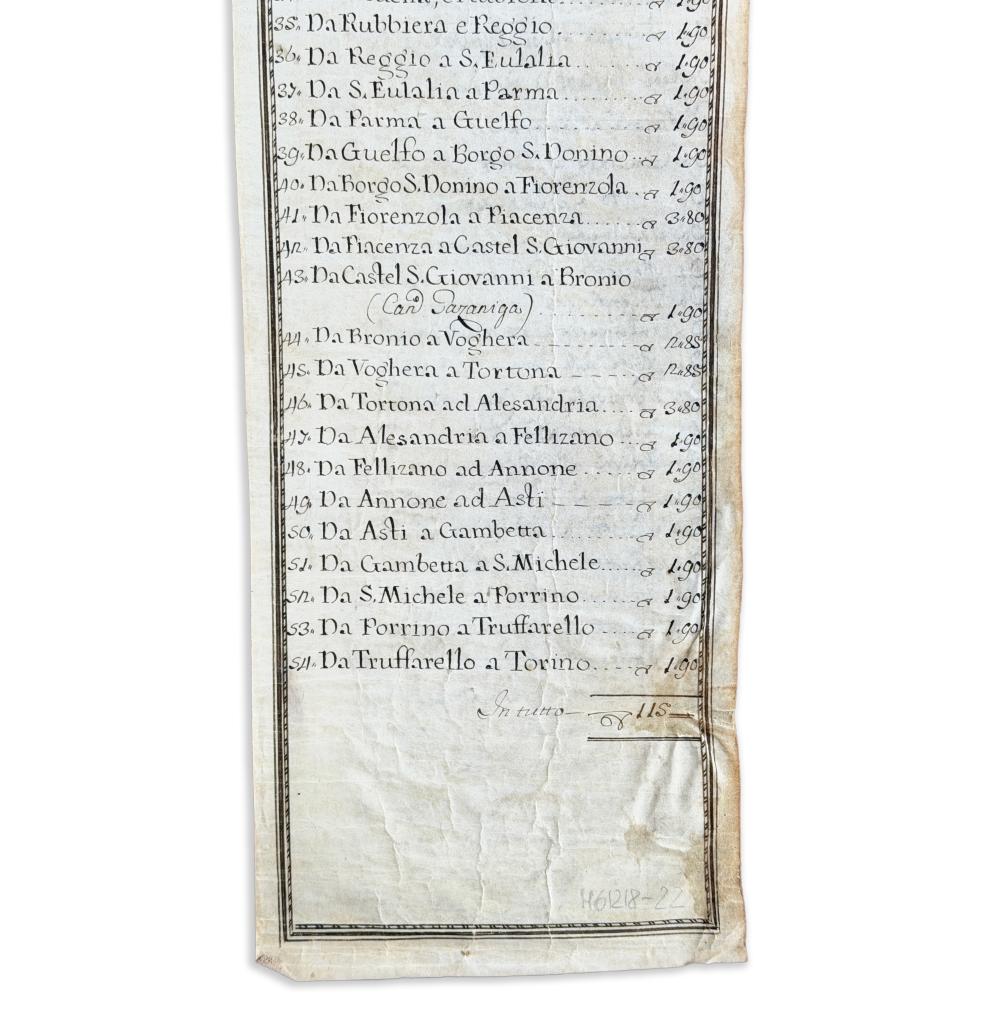 35. Da Rubbiera e Reggio . . . . . . . . . 1.90
36. Da Reggio a S. Eulalia . . . . . . . . 1.90
37. Da S. Eulalia a Parma . . . . . . . . 1.90
38. Da Parma a Guelfo . . . . . . . . . . 1.90
39. Da Guelfo a Borgo S. Donino . . . 1.90
40. Da Borgo S. Donino a Fiorenzola . . 1.90
41. Da Fiorenzola a Piacenza . . . . . . 3.80
42. Da Piacenza a Castel S. Giovanni 3.80
43. Da Castel S. Giovanni a Bronio
(Can° Gazaniga) . . . . . . . . . . 1.90
44. Da Bronio a Voghera 2.85
45. Da Voghera a Tortona 2.85
46. Da Tortona ad Alesandria . . . . 3.80
47. Da Alesandria a Fellizano . . . 1.90
48. Da Fellizano ad Annone . . . . . . 1.90
49. Da Annone ad Asti 1.90
50. Da Asti a Gambetta . . . . . . . . . 1.90
51. Da Gambetta a S. Michele . . . . . 1.90
52. Da S. Michele a Porrino . . . . . . 1.90
53. Da Porrino a Truffarello . . . . . 1.90
54. Da Truffarello a Torino . . . . . . 1.90
In tutto 115
H61218-22